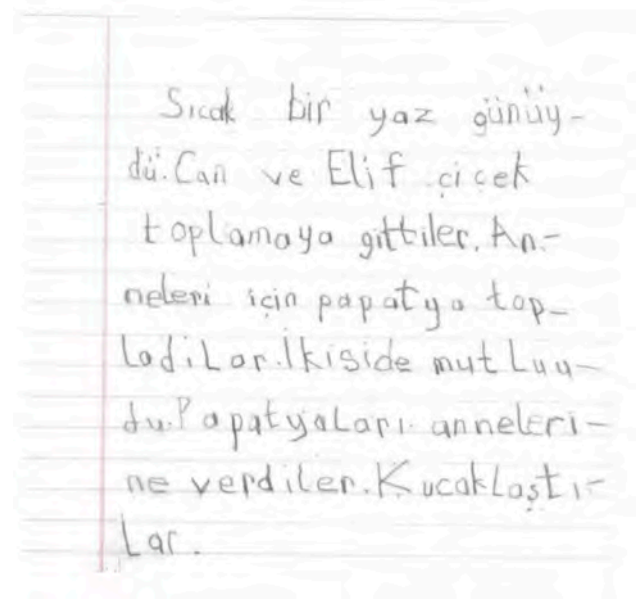 Sıcak bir yaz günüy-
dü. Can ve Elif çiçek
toplamaya gittiler. An-
neleri için papatya top-
ladiLar. İkiside mutLuy-
du. PapatyaLarı anneleri-
ne verdiler. KucakLaştı-
Lar.